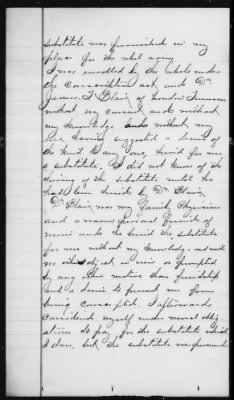 substitute was furnished in my
place for the rebel army
I was enrolled by the rebels under
the conscription act and Dr
James F Blair of Loudon Tennessee
without my consent and without
my knowledge and without my
ever having suggested a desire of
the kind to any one, hired for me
a substitute. I did not know of the
hiring of the substitute until he
had been hired by Dr Blair
Dr Blair was my family Physician
and a warm personal friend of
mine and he hired the substitute
for me without my knowledge and with
no other object in view or prompted
by any other motive than friendship
and a desire to prevent me from
being conscripted I afterwards
considered myself under moral oblig
ations to pay for the substitute which
I done, but the substitute was procured